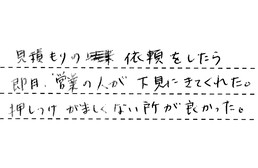 見積もりの依頼をしたら
即日、営業の人が下見にきてくれた。
押しつけがましくない所が良かった。